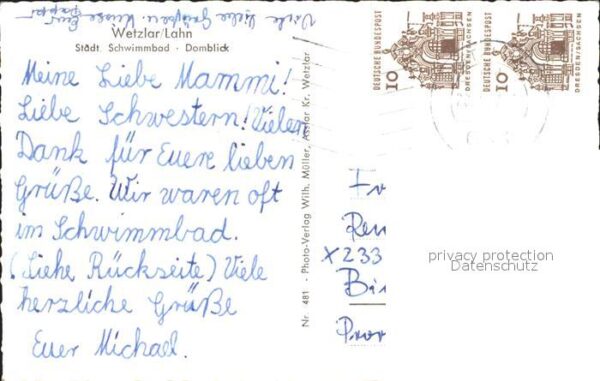 Viele liebe Grüße u. Küsse
Euer
Pappi
Wetzlar/Lahn
Städt. Schwimmbad · Domblick
Meine Liebe Mammi!
Liebe Schwestern! Vielen
Dank für Euere lieben
Grüße. Wir waren oft
im Schwimmbad.
(Siehe Rückseite) Viele
herzliche Grüße
Euer Michael.
Nr. 481 · Photo-Verlag Wilh. Müller, Asslar Kr. Wetzlar
DEUTSCHE BUNDESPOST
10
DRESDEN/SACHSEN
DEUTSCHE BUNDESPOST
10
DRESDEN/SACHSEN
X233
privacy protection
Datenschutz